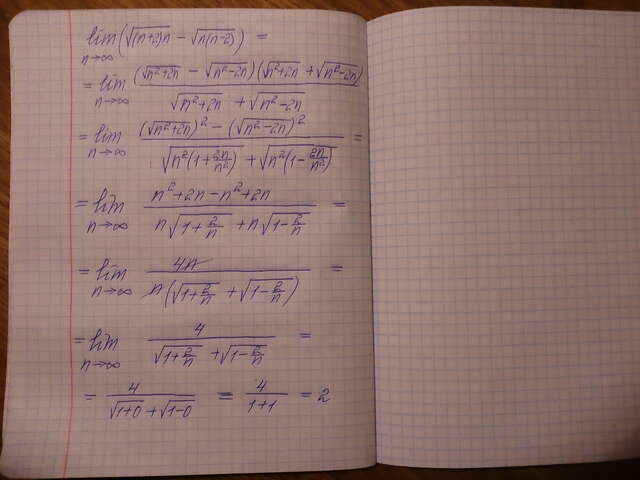 lim n→∞ (√(n+2)n − √n(n−2)) =
= lim n→∞ (√n²+2n − √n²−2n)(√n²+2n + √n²−2n) / √n²+2n + √n²−2n
= lim n→∞ (√n²+2n)² − (√n²−2n)² / √n²(1+2n/n²) + √n²(1−2n/n²) =
= lim n→∞ n²+2n−n²+2n / n√1+2/n + n√1−2/n =
= lim n→∞ 4n / n(√1+2/n + √1−2/n) =
= lim n→∞ 4 / √1+2/n + √1−2/n =
= 4 / √1+0 + √1−0 = 4 / 1+1 = 2